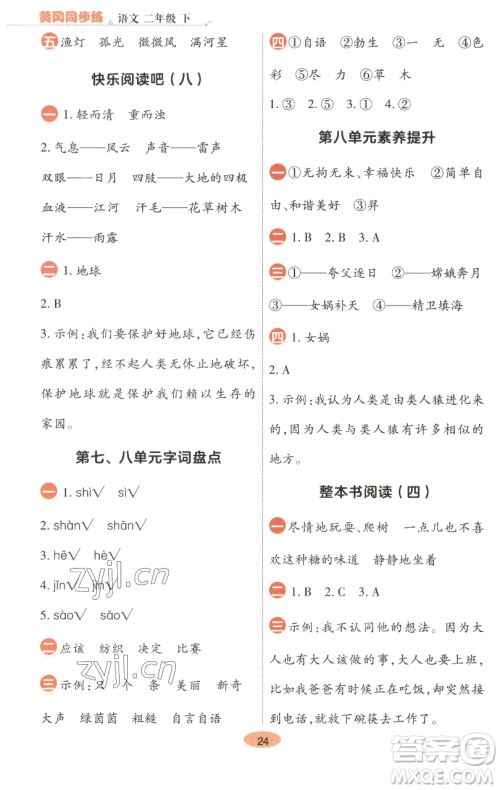 黄冈同步练 语文 二年级 下
五 渔灯 孤光 微微风 满河星
快乐阅读吧（八）
一 1. 轻而清 重而浊
2. 气息——风云 声音——雷声
双眼——日月 四肢——大地的四极
血液——江河 汗毛——花草树木
汗水——雨露
二 1. 地球
2. B
3. 示例：我们要保护好地球，它的伤
痕累累了，经不起人类无休止地破坏，
保护地球就是保护我们赖以生存的
家园。
第七、八单元字词盘点
一 1. shì√ sì√
2. shàn√ shān√
3. hē√ hè√
4. jīn√ jìn√
5. sào√ sǎo√
二 应该 纺织 决定 比赛
三 示例：只 个 条 美丽 新奇
大声 绿茵茵 粗糙 自言自语
四 ①自语 ②勃生 ③面 ④色
彩 ⑤方 ⑥草 木
1. ③ 2. ⑤ 3. ① 4. ②
第八单元素养提升
一 ①无拘无束、幸福快乐 ②简单自
由、和谐美好 ③羿
二 1. B 2. B 3. A
三 ①——夸父逐日 ②——嫦娥奔月
③——女娲补天 ④——精卫填海
四 1. 女娲
2. A
3. 示例：我认为人类是由类人猿进化来
的，因为人类与类人猿有许多相似的
地方。
整本书阅读（四）
一 尽情地玩耍、爬树 一点儿也不喜
欢这种糖的味道 静静地坐着
二 1. B 2. C 3. A
三 示例：我不认同他的想法。因为大
人也有该做的事，大人要上班。比
如我爸爸有时候正在吃饭，却突然
接到电话，就放下碗筷去工作了。
24
zyjl.cn
zyjl.cn